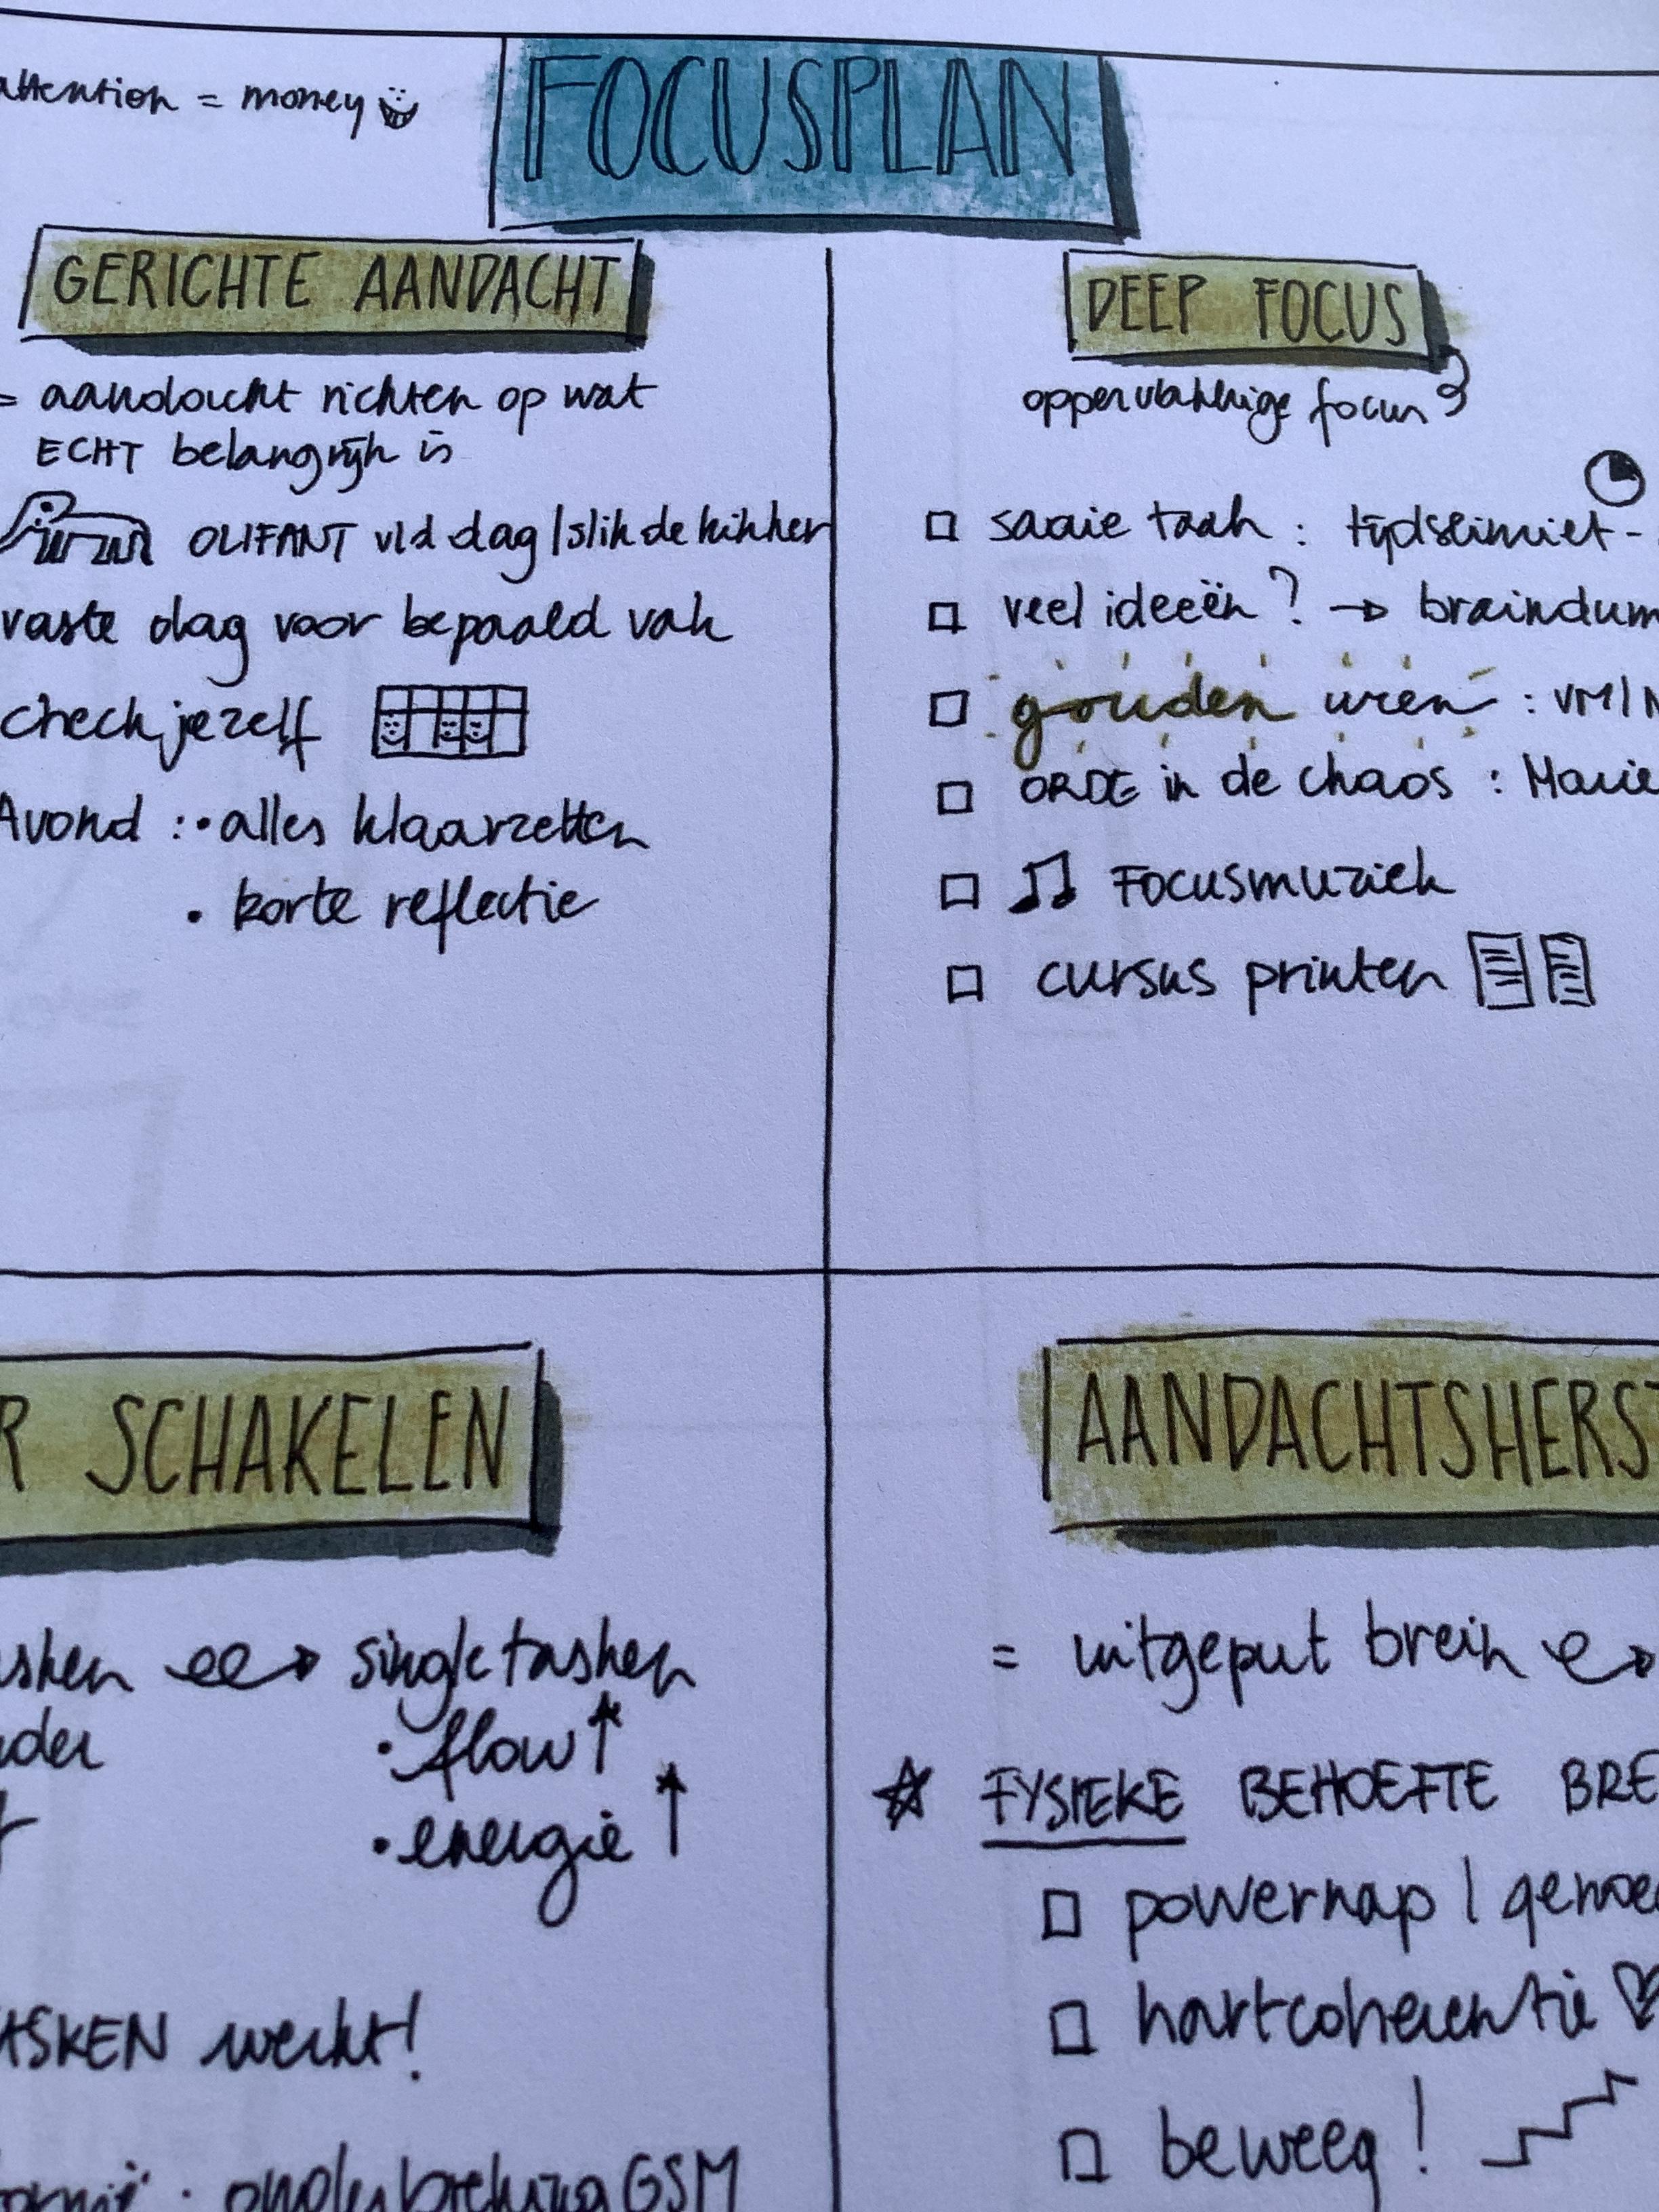 attention = money
FOCUSPLAN
GERICHTE AANDACHT
= aandacht richten op wat
ECHT belangrijk is
OLIFANT v/d dag / slik de kikker
vaste dag voor bepaald vak
check jezelf
Avond : • alles klaarzetten
• korte reflectie
DEEP FOCUS
oppervlakkige focus
saaie taak : tijdslimiet -
veel ideeën? → braindum
gouden uren : VM/N
ORDE in de chaos : Marie
FOCUSMUZIEK
cursus printen
R SCHAKELEN
sken → singletasken
nder
• flow ↑
• energie ↑
ASKEN werkt!
onderbreking GSM
AANDACHTSHERST
= uitgeput brein →
FYSIEKE BEHOEFTE BRE
powernap / genoe
hartcoherentie
beweeg!